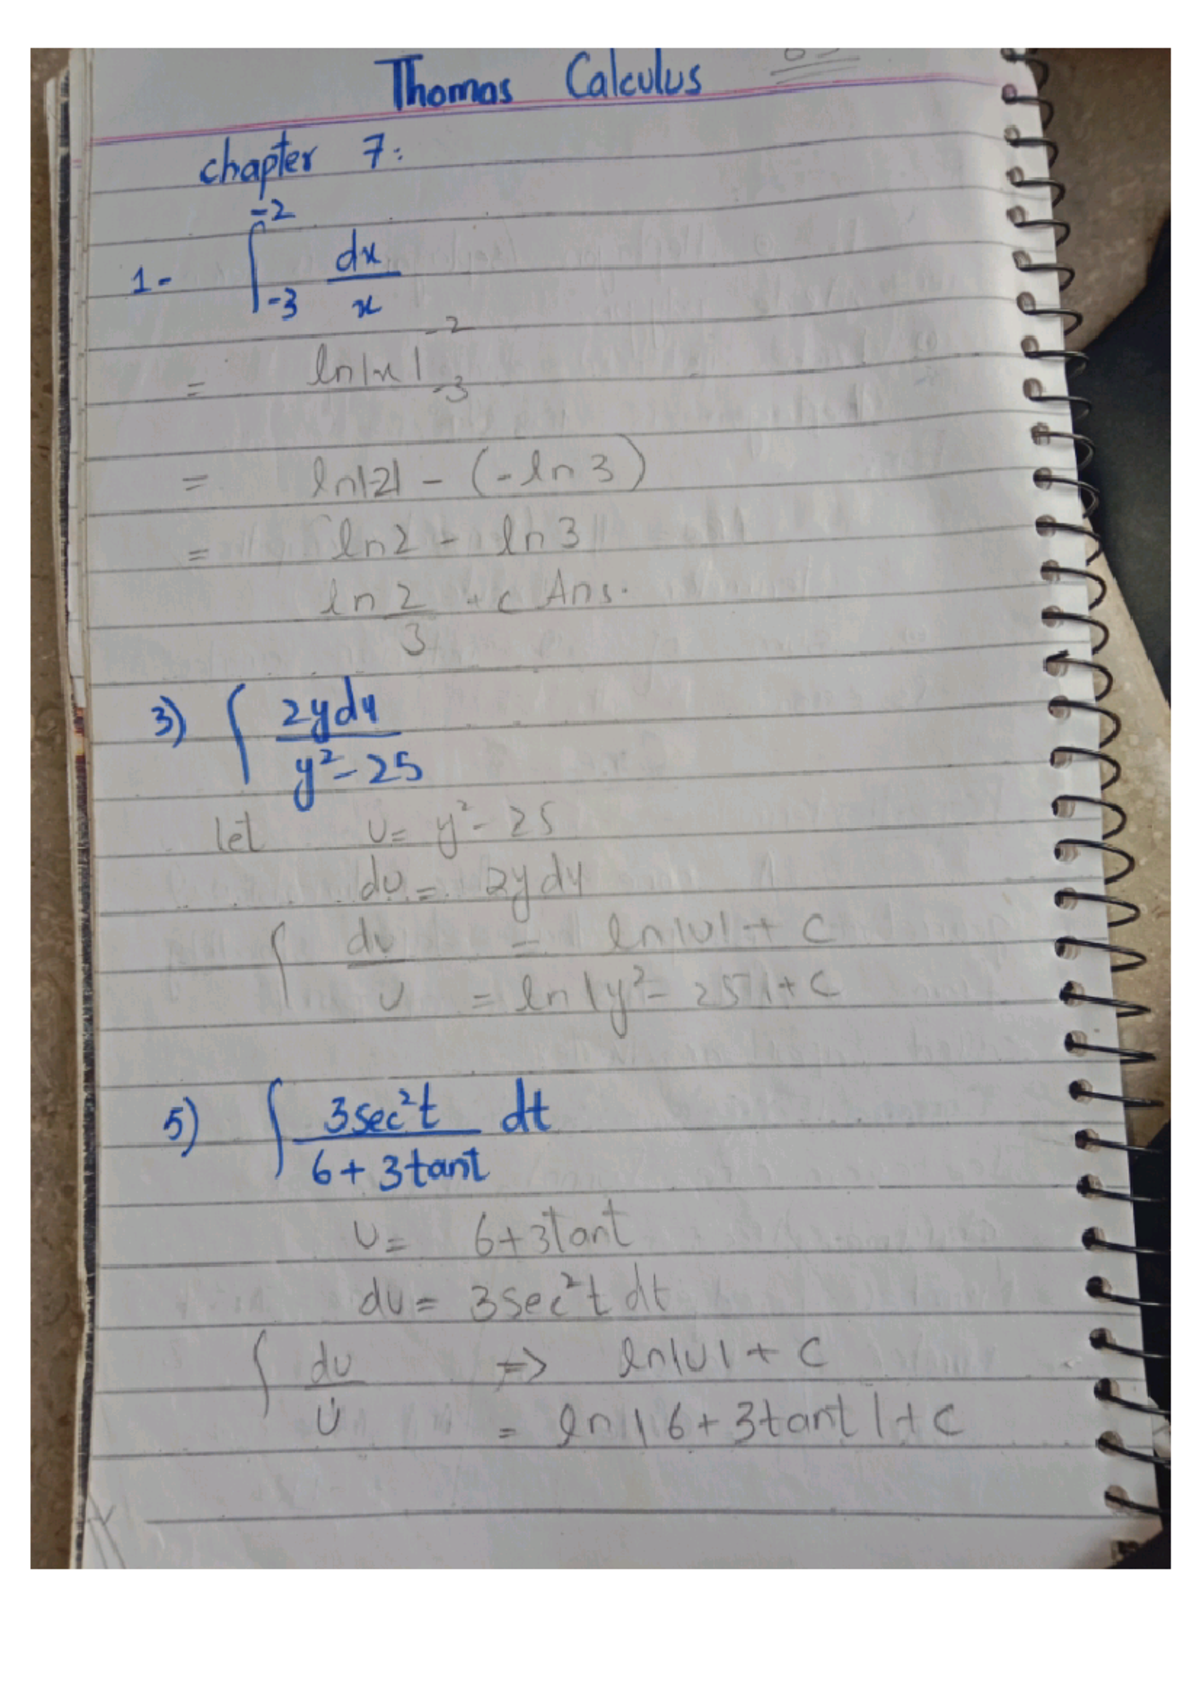 Thomas Calculus
chapter 7:
1- ∫₋₃⁻² dx/x
= ln|x| |₋₃⁻²
= ln|-2| - (-ln 3)
= ln2 - ln3
ln 2/3 + c Ans.
3) ∫ 2ydy/y²-25
let u= y²- 25
du = 2ydy
∫ du/u = ln|u| + c
= ln|y²- 25|+c
5) ∫ 3sec²t/6+3tant dt
u= 6+3tant
du= 3sec²t dt
∫ du/u => ln|u| + c
= ln|6+3tant|+c